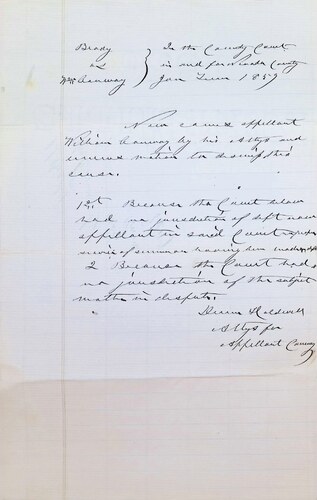 Brady } In the County Court
vs } in and for County
Wm Conway } Jan Term 1859
Now comes appellant
William Conway by his Attys and
moves motion to dismiss this
cause.
1st Because the Court below
had no jurisdiction of deft now
appellant in said Court
service of summons having been made
2 Because the Court had
no jurisdiction of the subject
matter in dispute.
Attys for
Appellant Conway